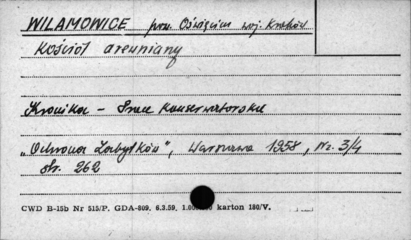 WILAMOWICE pow. Oświęcim woj. Kraków
Kościół drewniany
Kronika - Prace konserwatorskie
"Ochrona Zabytków", Warszawa 1958, Nr. 3/4
str. 262
CWD B-15b Nr 515/P. GDA-809. 6.3.59. 1.00 karton 180/V.